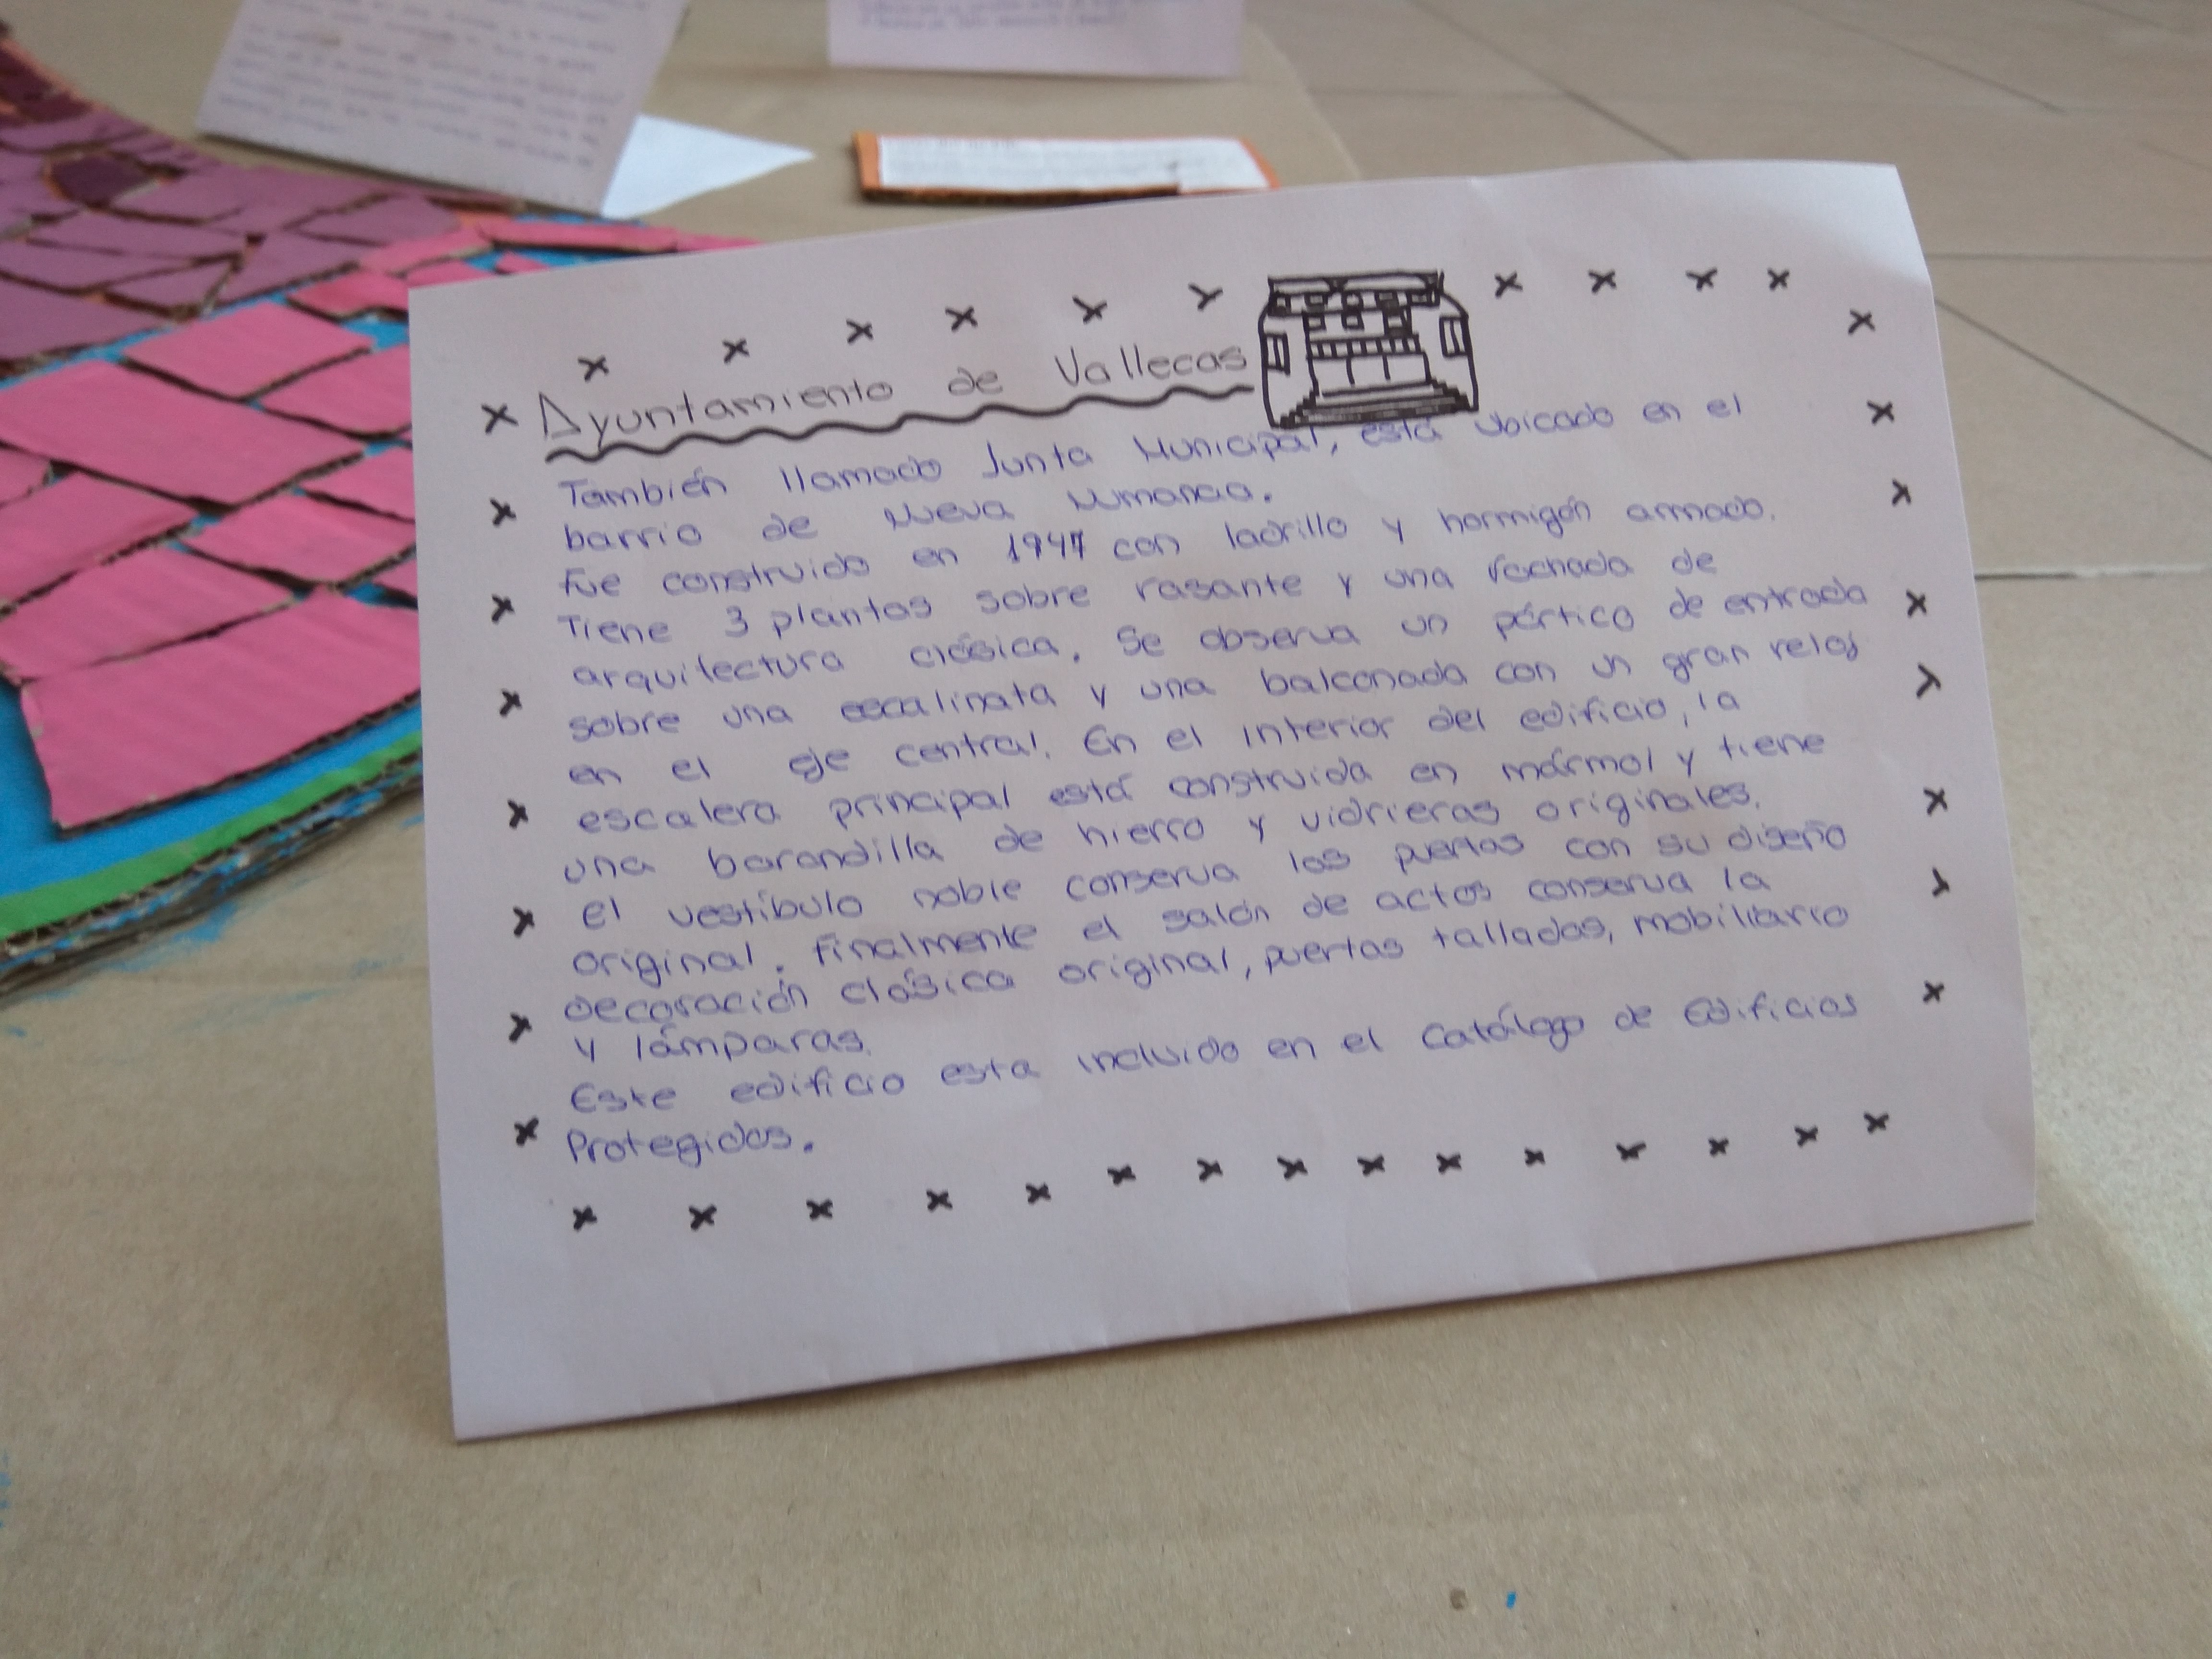 Ayuntamiento de Vallecas
También llamado Junta Municipal, está ubicado en el
barrio de Nueva Numancia.
fue construido en 1947 con ladrillo y hormigón armado.
Tiene 3 plantas sobre rasante y una fachada de
arquitectura clásica. Se observa un pórtico de entrada
sobre una escalinata y una balconada con un gran reloj
en el eje central. En el interior del edificio, la
escalera principal está construida en mármol y tiene
una barandilla de hierro y vidrieras originales.
el vestíbulo noble conserva las puertas con su diseño
original. finalmente el salón de actos conserva la
decoración clásica original, puertas talladas, mobiliario
y lámparas.
Este edificio esta incluido en el Catálogo de Edificios
Protegidos.